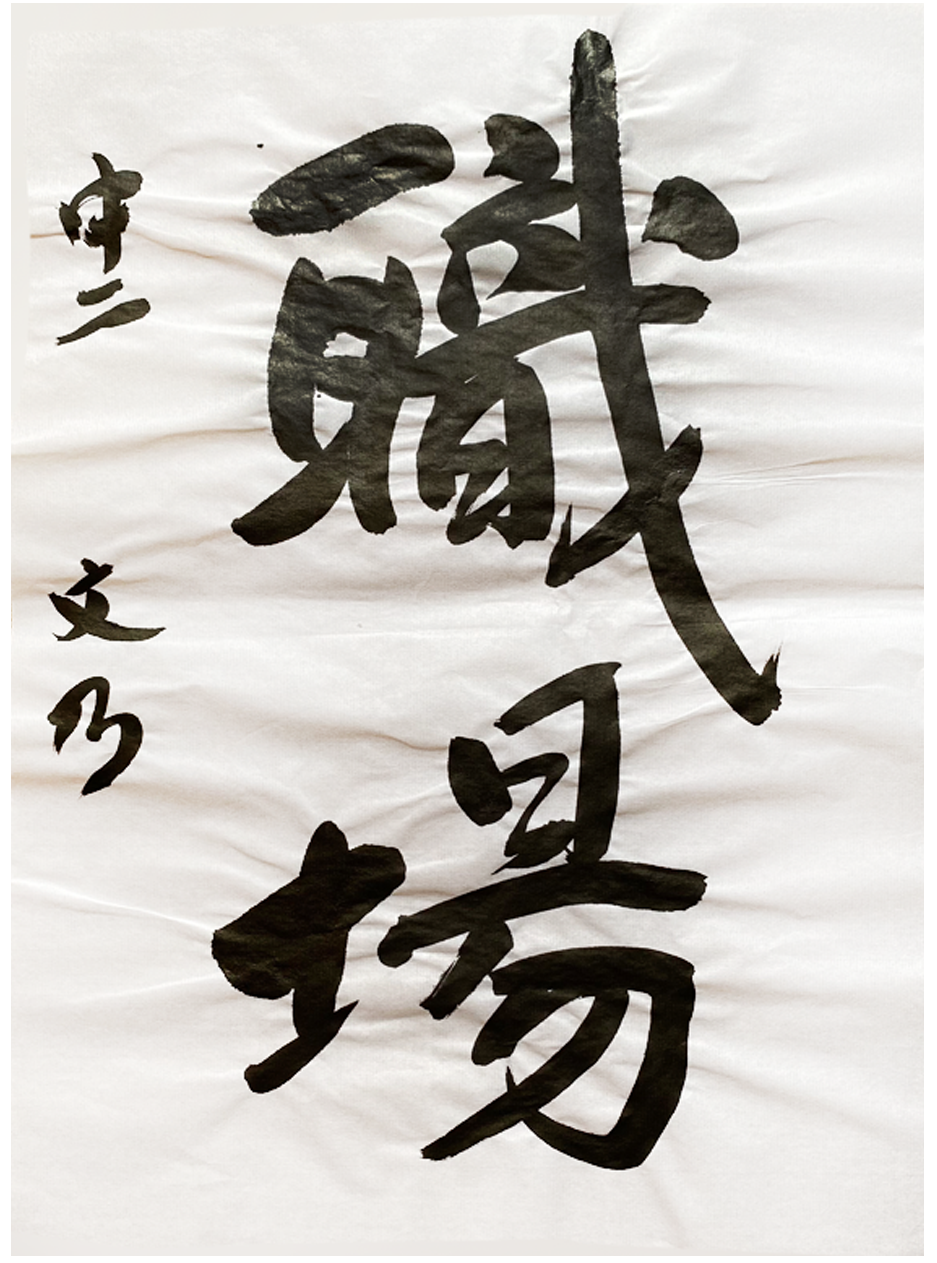 職場
中二 文乃